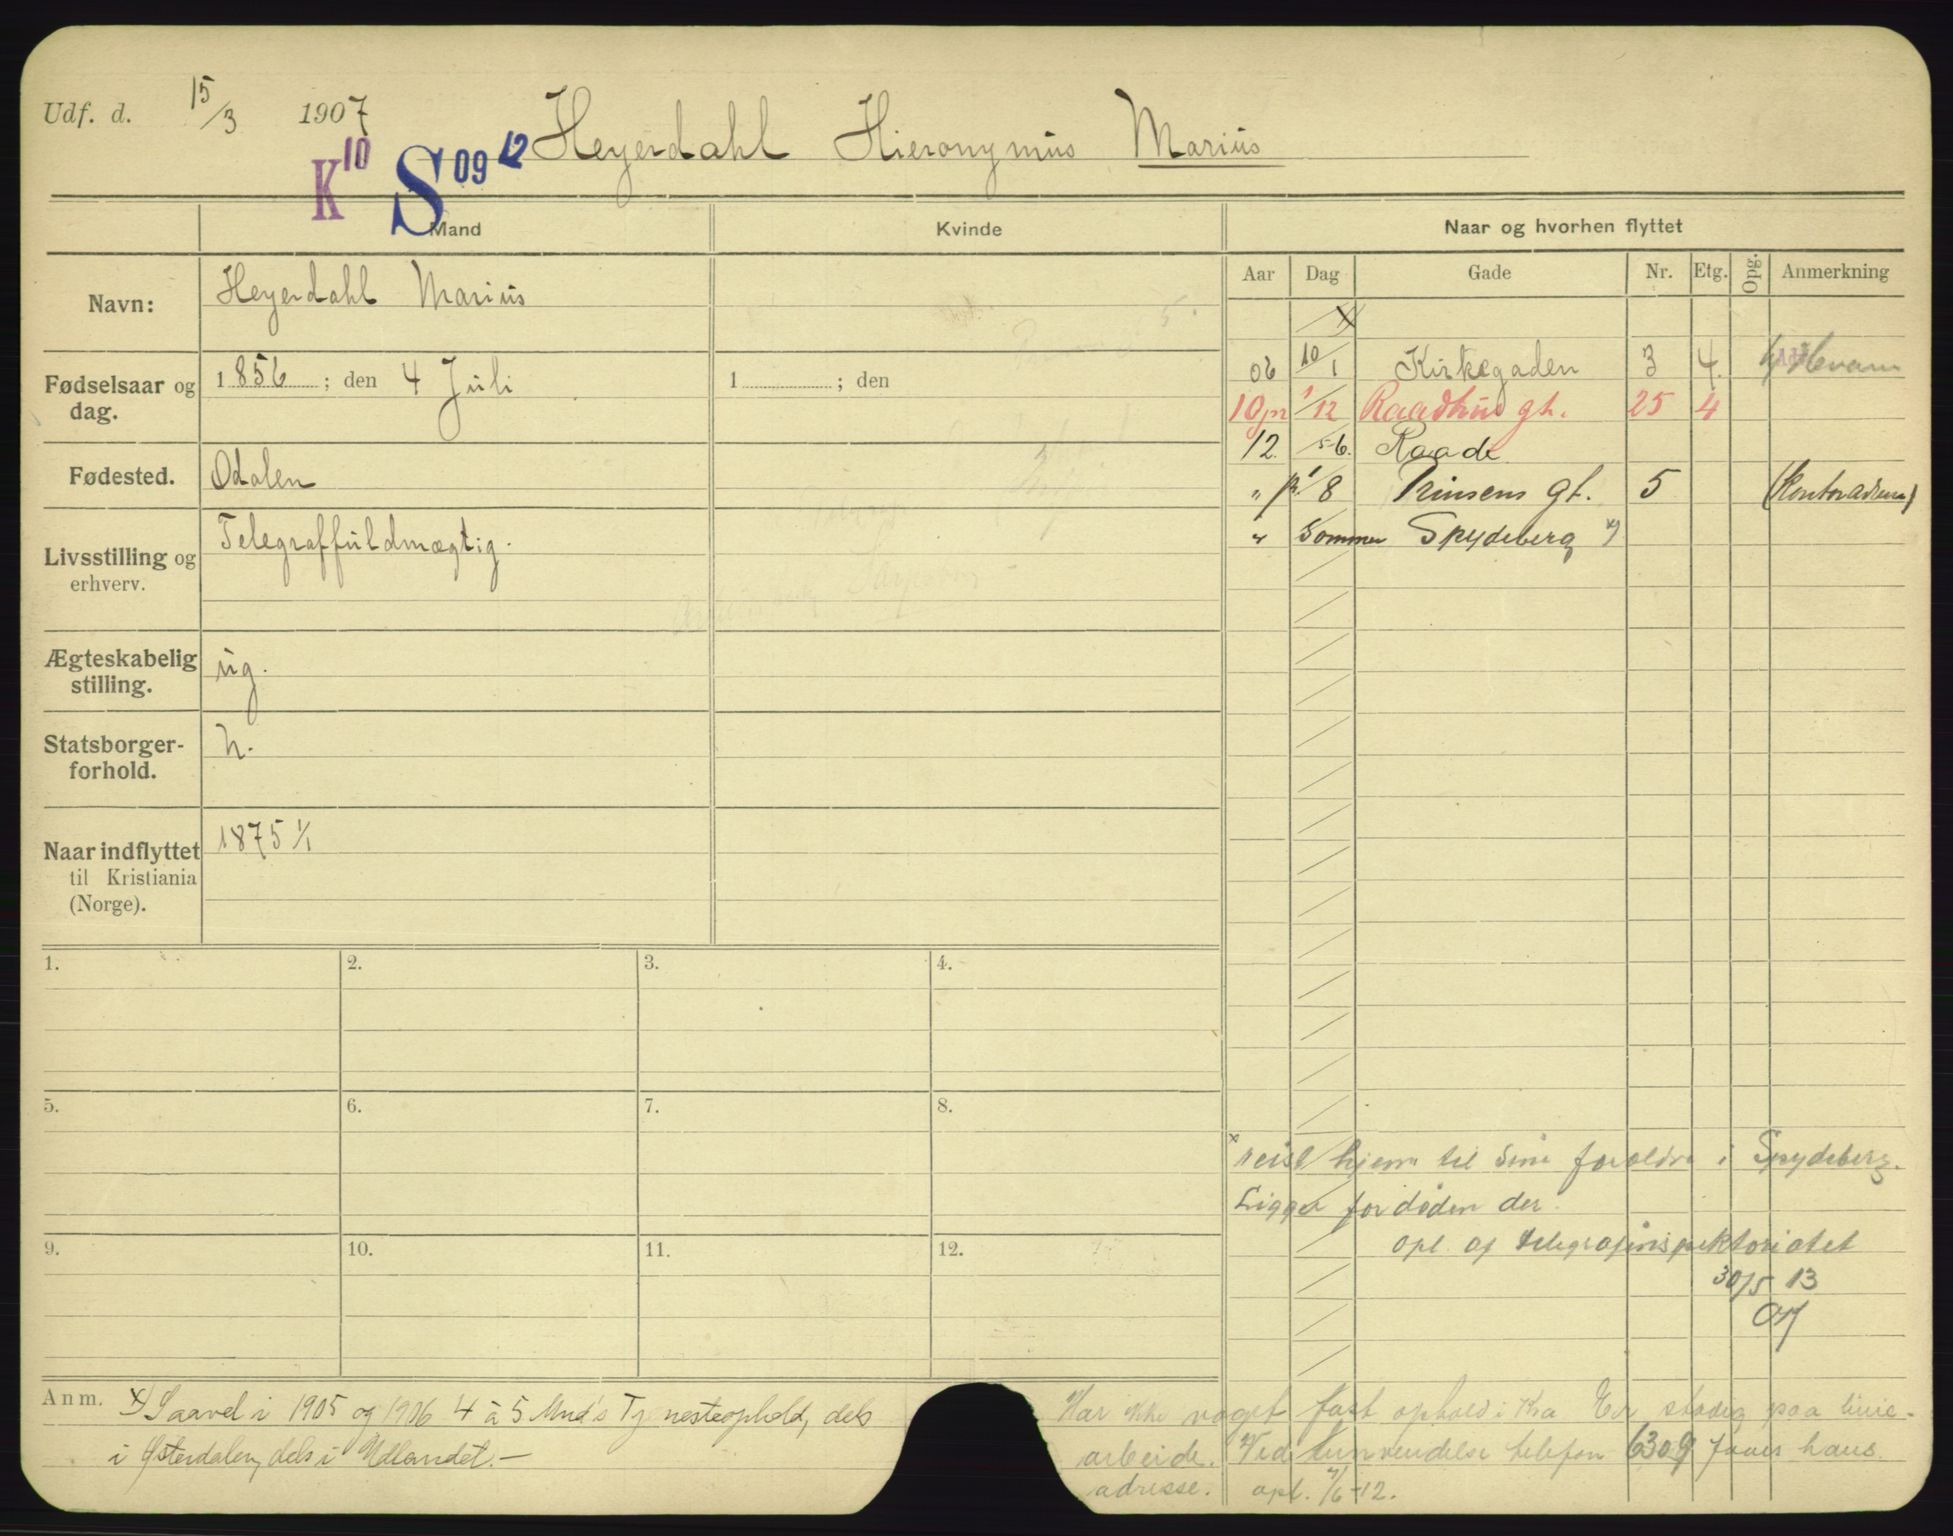 Udf. d. 15/3 1907 Heyerdahl Hieronymus Marius
K10 S09 12
Mand Kvinde Naar og hvorhen flyttet
Navn: Heyerdahl Marius
Fødselsaar og dag. 1856; den 4 Juli 1 ; den
Fødested. Odalen
Livsstilling og erhverv. Telegraffuldmægtig.
Ægteskabelig stilling. ug.
Statsborgerforhold. n.
Naar indflyttet til Kristiania (Norge). 1875 1/1
Aar Dag Gade Nr. Etg. Opg. Anmerkning
x
06 10/1 Kirkegaden 3 4.
10 pr 1/12 Raadhus gt. 25 4
12. 5/6. Raade
" pr. 1/8 Prinsens gt. 5 (Kontoradresse)
" Sommer Spydeberg x)
1. 2. 3. 4.
5. 6. 7. 8.
9. 10. 11. 12.
x reist hjem til sine forældre i Spydeberg.
Ligger for døden der.
opl. af telegrafinspektoriatet
30/5 13
Anm. x) Saavel i 1905 og 1906 4 à 5 Mnd's Tjenesteophold, dels
i Østerdalen, dels i Udlandet.-
Har ikke noget fast ophold i Kra Er stadig paa linie-
arbeide. Ved henvendelse telefon 6309 faaes hans
adresse. opl. 7/6-12.